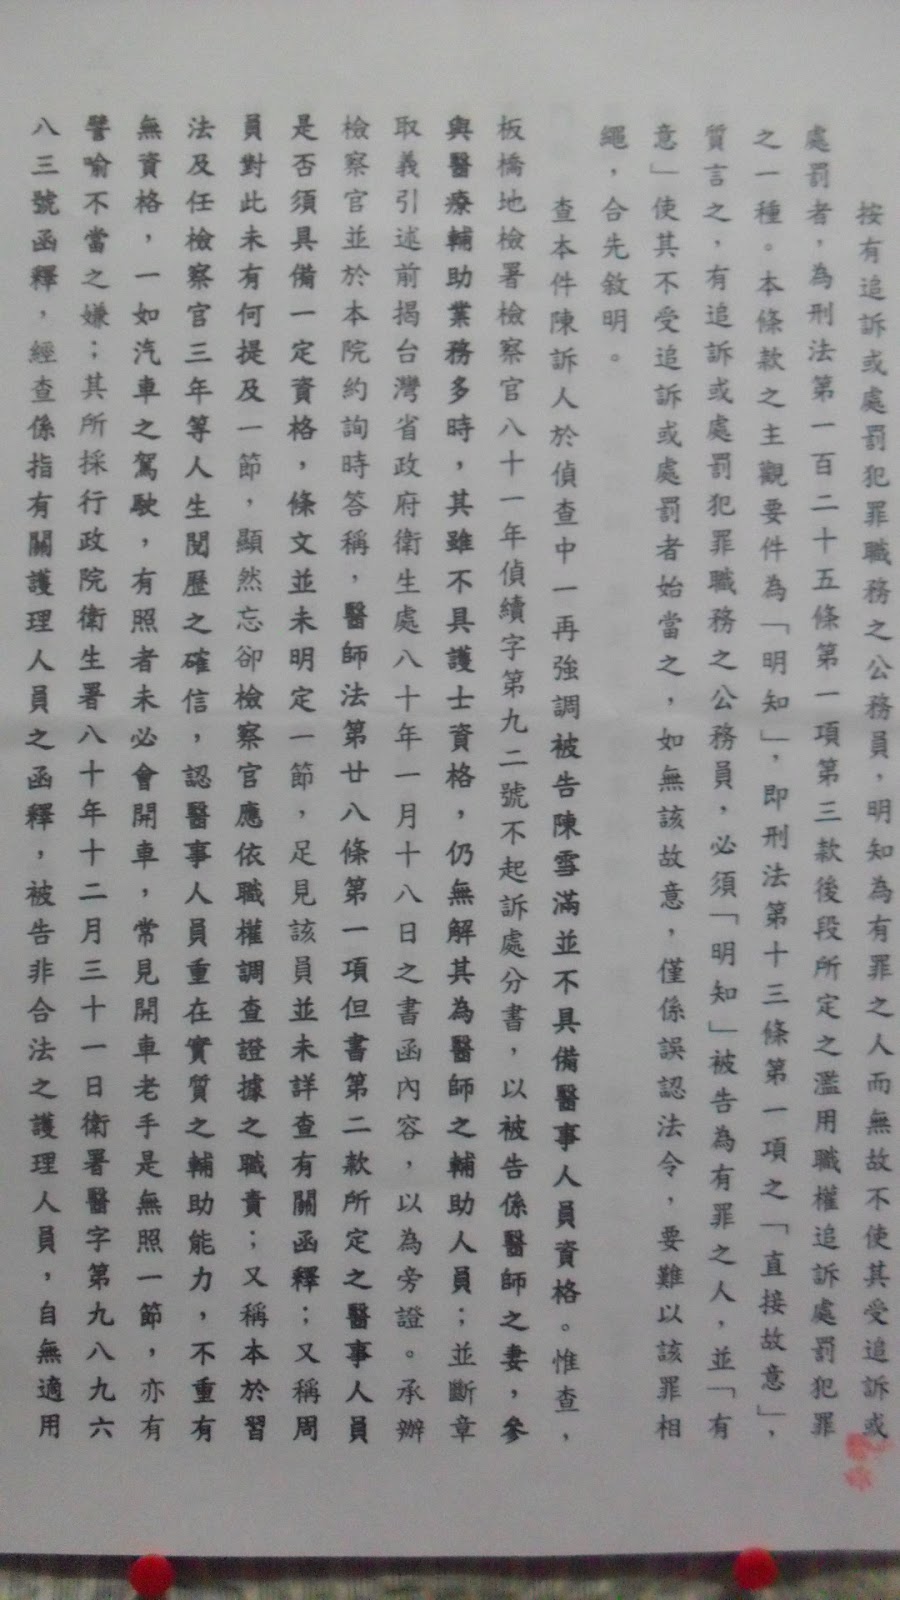 按有追訴或處罰犯罪職務之公務員，明知為有罪之人而無故不使其受追訴或
處罰者，為刑法第一百二十五條第一項第三款後段所定之濫用職權追訴處罰犯罪
之一種。本條款之主觀要件為「明知」，即刑法第十三條第一項之「直接故意」，
質言之，有追訴或處罰犯罪職務之公務員，必須「明知」被告為有罪之人，並「有
意」使其不受追訴或處罰者始當之，如無該故意，僅係誤認法令，要難以該罪相
繩，合先敘明。
查本件陳訴人於偵查中一再強調被告陳雪滿並不具備醫事人員資格。惟查，
板橋地檢署檢察官八十一年偵續字第九二號不起訴處分書，以被告係醫師之妻，參
與醫療輔助業務多時，其雖不具護士資格，仍無解其為醫師之輔助人員；並斷章
取義引述前揭台灣省政府衛生處八十年一月十八日之書函內容，以為旁證。承辦
檢察官並於本院約詢時答稱，醫師法第廿八條第一項但書第二款所定之醫事人員
是否須具備一定資格，條文並未明定一節，足見該員並未詳查有關函釋；又稱周
員對此未有何提及一節，顯然忘卻檢察官應依職權調查證據之職責；又稱本於習
法及任檢察官三年等人生閱歷之確信，認醫事人員重在實質之輔助能力，不重有
無資格，一如汽車之駕駛，有照者未必會開車，常見開車老手是無照一節，亦有
譬喻不當之嫌；其所採行政院衛生署八十年十二月三十一日衛署醫字第九八九六
八三號函釋，經查係指有關護理人員之函釋，被告非合法之護理人員，自無適用